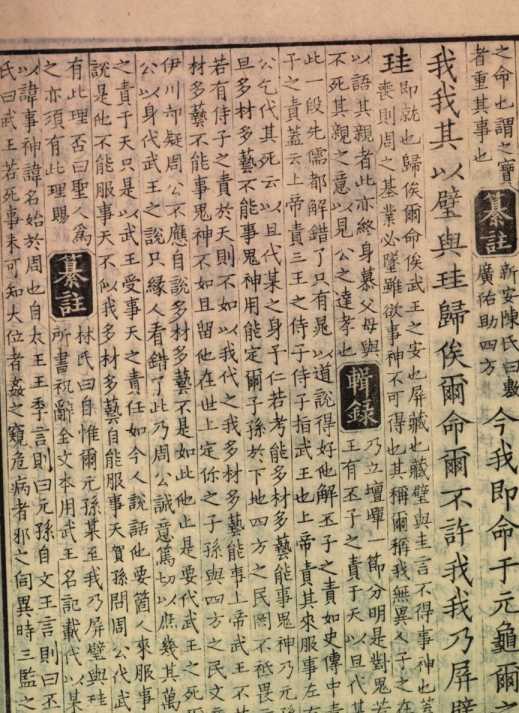 之命也謂之寶
者重其事也
纂註
新安陳氏曰敷
廣佑助四方
今我即命于元龜爾之
我我其以璧與珪歸俟爾命爾不許我我乃屏璧
珪
即就也歸俟爾命俟武王之安也屏藏也藏璧與圭言不得事神也蓋
喪則周之基業必墜雖欲事神不可得也其稱爾稱我無異人子之在
以語其親者此亦終身慕父母與
不死其親之意以見公之達孝也
輯録
乃立壇墠一節分明是對鬼若
王有丕子之責于天以旦代某
此一段先儒都解錯了只有晁以道說得好他解丕子之責如史傳中責
子之責蓋云上帝責三王之侍子侍子指武王也上帝責其來服事左右
公乞代其死云以旦代某之身予仁若考能多材多藝能事鬼神乃元孫
旦多材多藝不能事鬼神用能定爾子孫於下地四方之民罔不祗畏
若有侍子之責於天則不如以我代之我多材多藝能事上帝武王不若
材多藝不能事鬼神不如且留他在世上定你之子孫與四方之民文意
伊川却疑周公不應自說多材多藝不是如此他止是要代武王之死
公以身代武王之說只緣人看錯了此乃周公誠意篤切以庶幾其萬
之責于天只是以武王受事天之責任如今人說話他要箇人來服事
說是他不能服事天不似我多材多藝自能服事天賀孫問周公代武
有此理否曰聖人爲
之亦須有此理賜
纂註
林氏曰自惟爾元孫某至我乃屏璧與珪
所書祝辭全文本用武王名記載代以某
以諱事神諱名始於周也自太王王季言則曰元孫自文王言則曰丕
氏曰武王若死事未可知大位者姦之窺危病者邪之伺異時三監之